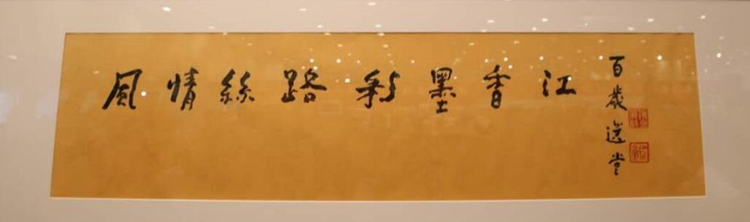 風情絲路彩墨香江
百歲選堂